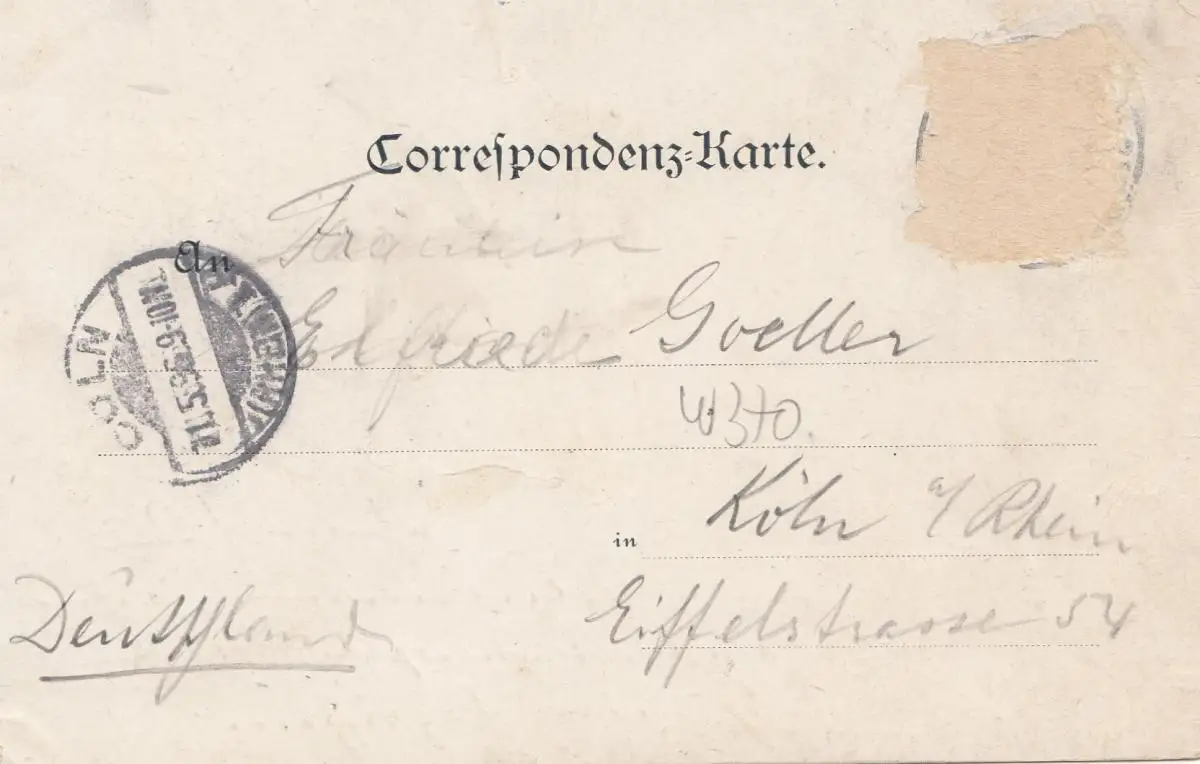 Correſpondenz-Karte.
An Fräulein
Elfriede Goeller
in Köln a/Rhein
Eiffelstrasse 54
Deutschland
CÖLN
9-10N.